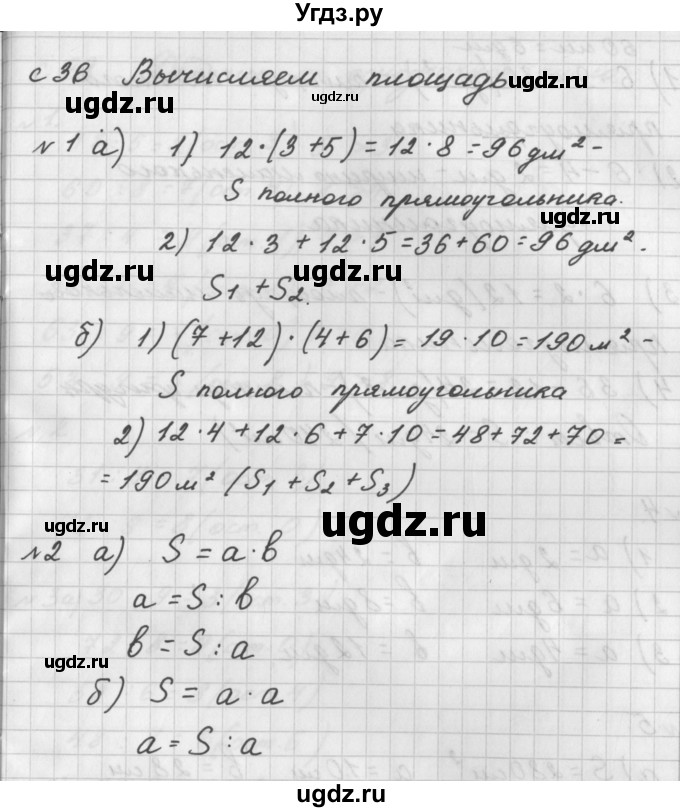 Угдз.ру
с 36 Вычисляем площадь
ugdz.ru
ugdz.ru
№1 а) 1) 12·(3+5)=12·8=96дм² -
S полного прямоугольника.
ugdz.ru
2) 12·3+12·5=36+60=96дм².
ugdz.ru
ugdz.ru
S1+S2.
б) 1) (7+12)·(4+6)=19·10=190м² -
S полного прямоугольника
2) 12·4+12·6+7·10=48+72+70=
=190м² (S1+S2+S3)
ugdz.ru
ugdz.ru
№2 а) S=a·в
a=S:в
в=S:a
ugdz.ru
ugdz.ru
б) S=a·a
a=S:a
ugdz.ru
ugdz.ru